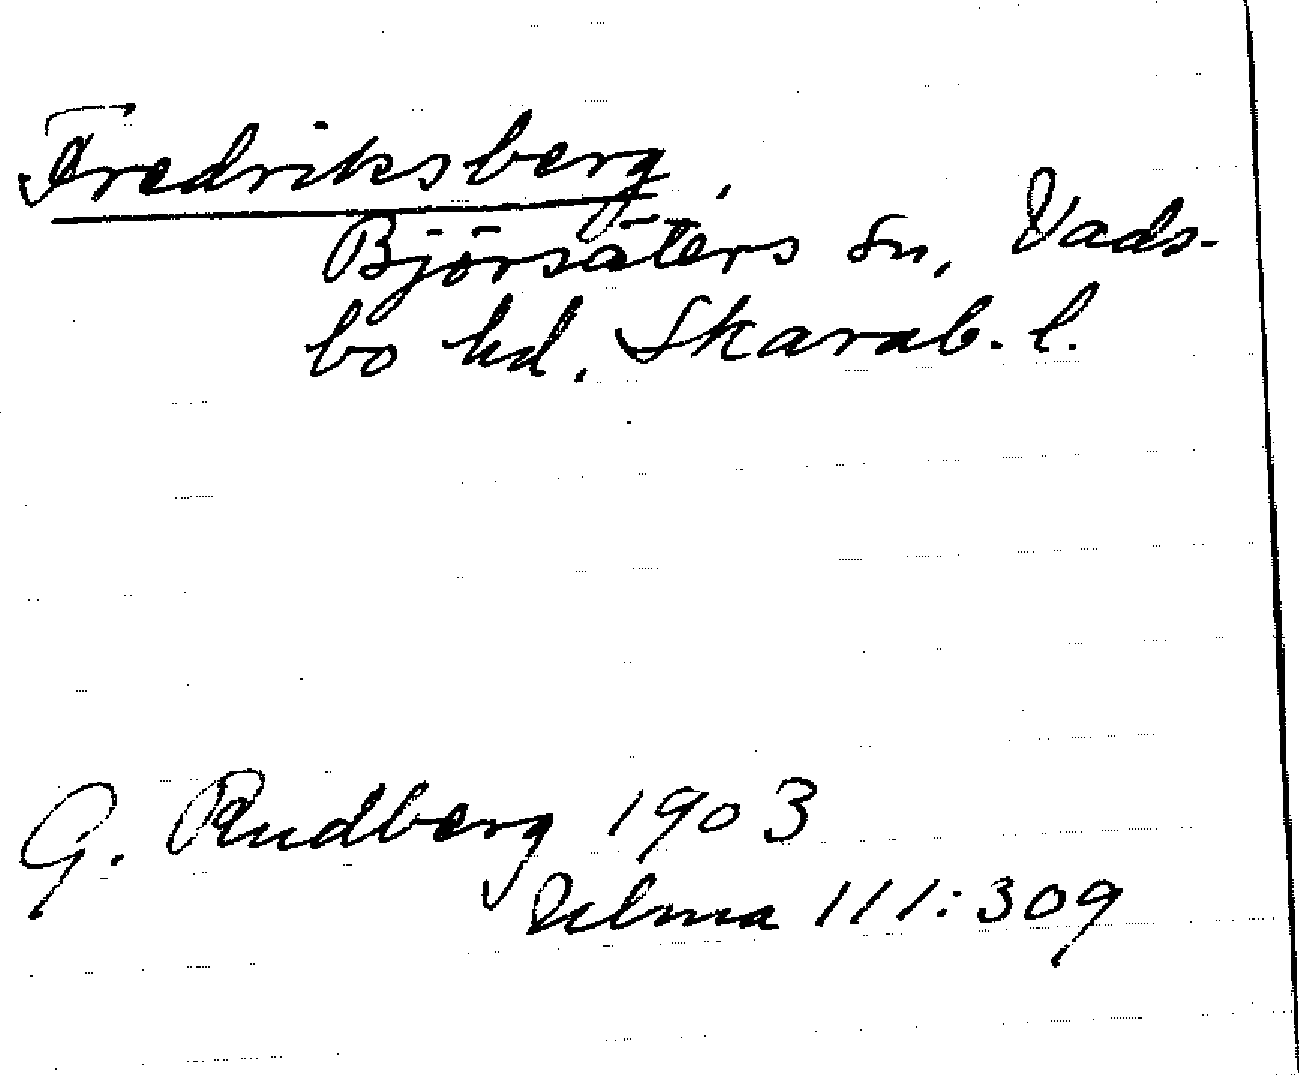 Fredriksberg,
Björsäters sn, Vads-
bo hd. Skarab. l.
G. Rudberg 1903
Ulma 111:309